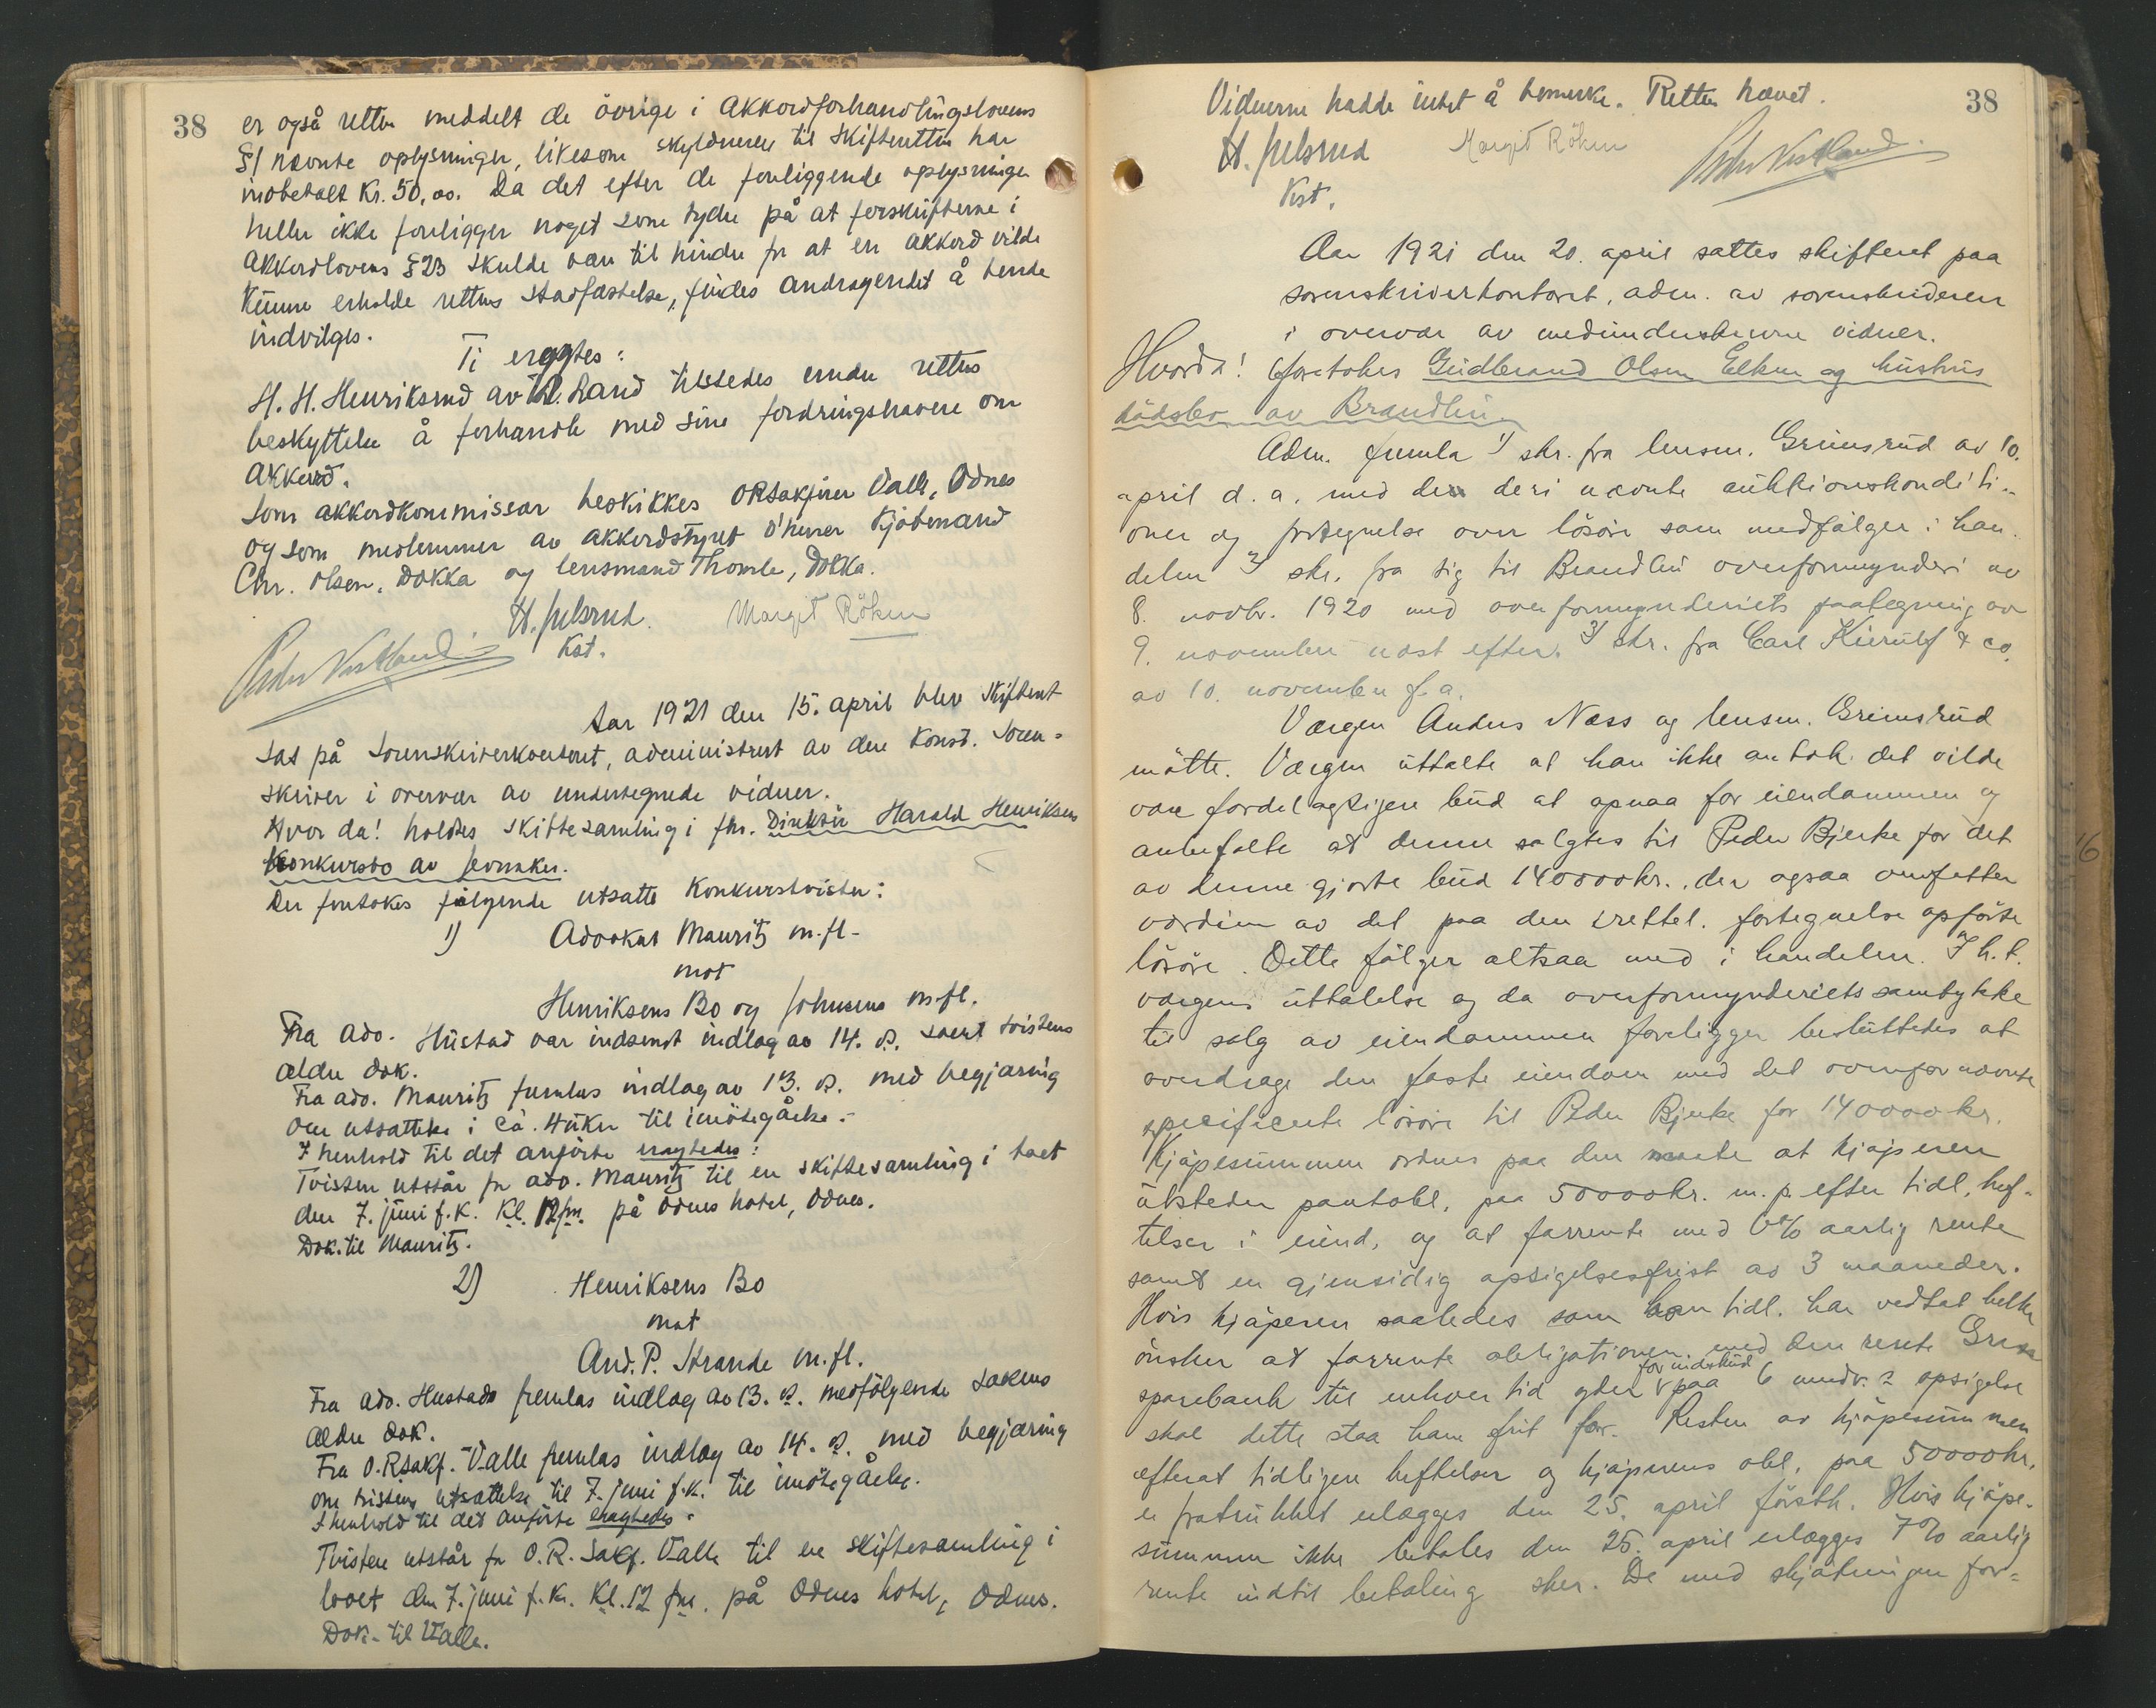 38
er også retten meddelt de övrige i akkordforhandlingslovens
§1 nævnte oplysninger, likesom skyldneren til skifteretten har
indbetalt Kr. 50,00. Da det efter de foreliggende oplysninger
heller ikke foreligger noget som tyder på at forskrifterne i
akkordlovens §23 skulde være til hinder for at en akkord vilde
kunne erholde rettens stadfæstelse, findes andragendet å burde
indvilges.
Ti eragtes:
H. H. Henriksrud av N. Land tilstedes under rettens
beskyttelse å forhandle med sine fordringshavere om
akkord.
Som akkordkommissær beskikkes ORsakfører Valle, Odnes
og som medlemmer av akkordstyret d'herrer Kjöbmand
Chr. Olsen, Dokka og lensmand Thomle, Dokka.
H. Julsrud. Margit Röken
Kst.
Peder Vestland
Aar 1921 den 15. april blev skifteret
sat på Sorenskriverkontoret, administrert av den Konst. Soren-
skriver i overvær av undertegnede vidner.
Hvor da! holdtes skiftesamling i fhr. Direktör Harald Henriksens
konkursbo av Jevnaker.
Der foretokes følgende utsatte Konkurstvister:
1) Advokat Mauritz m.fl.
mot
Henriksens Bo og Johnsens m.fl.
Fra adv. Hustad var indsendt indlæg av 14. ds. samt tvistens
ældre dok.
Fra adv. Mauritz fremlas indlæg av 13. ds. med begjæring
om utsættelse i ca. 4 uker til imötegåelse.
I henhold til det anförte eragtedes:
Tvisten utstår for adv. Mauritz til en skiftesamling i boet
den 7. juni f.k. Kl. 12 fm. på Odnes hotel, Odnes.
Dok. til Mauritz.
2) Henriksens Bo
mot
And. P. Strande m.fl.
Fra adv. Hustad fremlas indlæg av 13. ds. medfölgende sakens
ældre dok.
Fra O.Rsakf. Valle fremlas indlæg av 14. ds. med begjæring
om tvistens utsættelse til 7. juni f.k. til imötegåelse.
I henhold til det anförte eragtedes:
Tvisten utstår for O.R. sakf. Valle til en skiftesamling i
boet den 7. juni f.k. Kl. 12 fm. på Odnes hotel, Odnes.
Dok. til Valle.
38
Vidnerne hadde intet å bemerke. Retten hævet.
H. Julsrud Margit Röken Peder Vestland
Kst.
Aar 1921 den 20. april sattes skifteret paa
sorenskriverkontoret, adm. av sorenskriveren
i overvær av medunderskrevne vidner.
Hvorda! foretokes Gudbrand Olsen Elken og hustrus
dödsbo av Brandbu.
Adm. fremla 1/ skr. fra lensm. Grimsrud av 10.
april d.a. med den deri nævnte auktionskonditi-
oner og fortegnelse over lösöre som medfölger i han-
delen 2/ skr. fra sig til Brandbu overformynderi av
8. novbr. 1920 med overformynderiets paategning av
9. november næst efter. 3/ skr. fra Carl Kierulf & co.
av 10. november f.a.
Værgen Anders Næss og lensm. Grimsrud
mötte. Værgen uttalte at han ikke antok det vilde
være fordelagtigere bud at opnaa for eiendommen og
anbefalte at denne salgtes til Peder Bjerke for det
av denne gjorte bud 140000 kr., der ogsaa omfatter
værdien av det paa den irettel. fortegnelse opförte
lösöre. Dette fölger altsaa med i handelen. I h.t.
værgens uttalelse og da overformynderiets samtykke
til salg av eiendommen foreligger besluttedes at
overdrage den faste eiendom med det ovenfor nævnte
specificerte lösöre til Peder Bjerke for 140000 kr.
Kjöpesummen ordnes paa den maate at kjöperen
utsteder pantobl. paa 50000 kr. m. p. efter tidl. hef-
telser i eiend. og at forrente med 6% aarlig rente
samt en gjensidig opsigelsesfrist av 3 maaneder.
Hvis kjöperen saaledes som han tidl. har vedtat heller
önsker at forrente obligationen med den rente Gran
sparebank til enhver tid yder for indskud paa 6 mndr.s opsigelse
skal dette staa ham frit for. Resten av kjöpesummen
efterat tidligere heftelser og kjöperens obl. paa 50000 kr.
er fratrukket erlægges den 25. april förstk. Hvis kjöpe-
summen ikke betales den 25. april erlægges 7% aarlig
rente indtil betaling sker. De med skjötningen for-
16